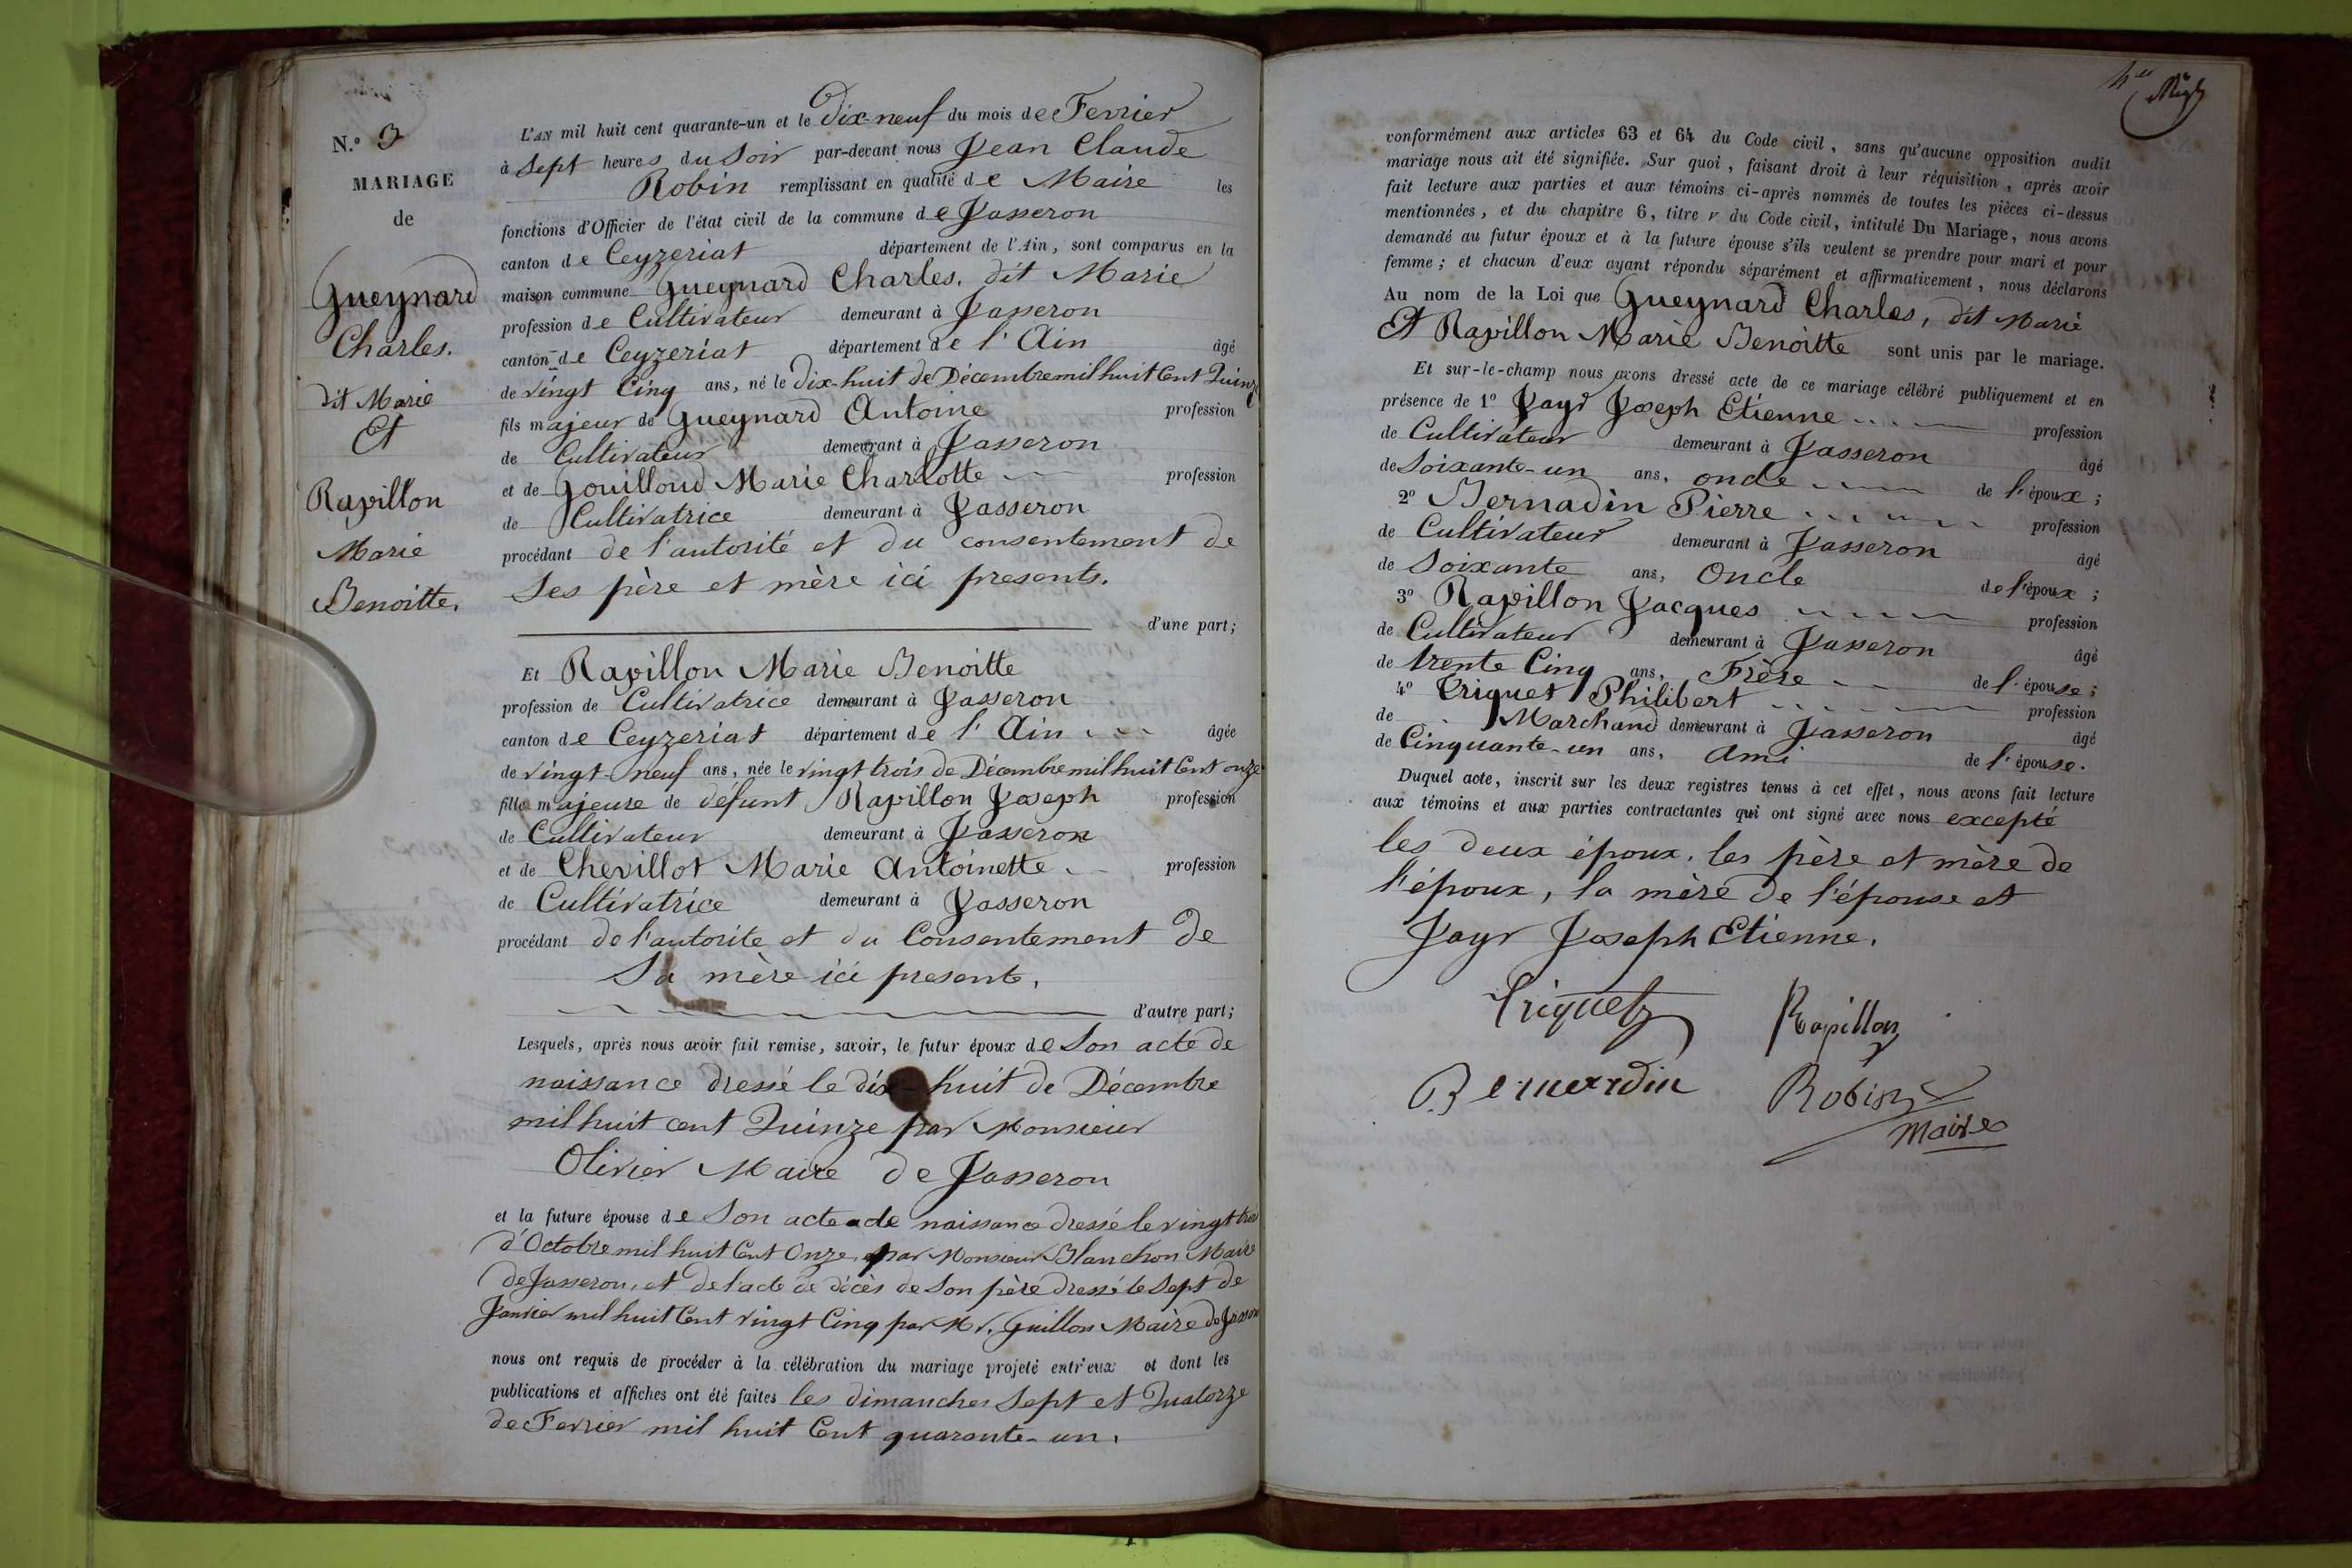 N.º 3
MARIAGE
de
Gueynard
Charles.
dit Marie
Et
Rapillon
Marie
Benoitte.
L'AN mil huit cent quarante-un et le Dix-neuf du mois de Fevrier
à Sept heures du Soir par-devant nous Jean Claude
Robin remplissant en qualité de Maire les
fonctions d'Officier de l'état civil de la commune de Jasseron
canton de Ceyzeriat département de l'Ain, sont comparus en la
maison commune Gueynard Charles. dit Marie
profession de Cultivateur demeurant à Jasseron
canton de Ceyzeriat département de l'Ain âgé
de vingt Cinq ans, né le Dix-huit de Décembre mil huit Cent Quinze
fils majeur de Gueynard Antoine profession
de Cultivateur demeurant à Jasseron
et de Gouilloud Marie Charlotte profession
de Cultivatrice demeurant à Jasseron
procédant de l'autorité et du consentement de
Ses père et mère ici presents.
d'une part;
Et Rapillon Marie Benoitte
profession de Cultivatrice demeurant à Jasseron
canton de Ceyzeriat département de l'Ain âgée
de vingt-neuf ans, née le vingt trois de Décembre mil huit Cent onze
fille majeure de défunt Rapillon Joseph profession
de Cultivateur demeurant à Jasseron
et de Chevillot Marie Antoinette profession
de Cultivatrice demeurant à Jasseron
procédant de l'autorite et du Consentement de
Sa mère ici presente.
d'autre part;
Lesquels, après nous avoir fait remise, savoir, le futur époux de Son acte de
naissance dressé le dix-huit de Décembre
mil huit cent Quinze par Monsieur
Olivier Maire de Jasseron
et la future épouse de Son acte de naissance dressé le vingt trois
d'Octobre mil huit Cent Onze, par Monsieur Blanchon Maire
de Jasseron, et de l'acte de décès de Son père dressé le Sept de
Janvier mil huit Cent vingt Cinq par Mr. Guillon Maire de Jasseron
nous ont requis de procéder à la célébration du mariage projeté entr'eux et dont les
publications et affiches ont été faites les dimanches Sept et Quatorze
de Fevrier mil huit Cent quarante-un.
conformément aux articles 63 et 64 du Code civil, sans qu'aucune opposition audit
mariage nous ait été signifiée. Sur quoi, faisant droit à leur réquisition, après avoir
fait lecture aux parties et aux témoins ci-après nommés de toutes les pièces ci-dessus
mentionnées, et du chapitre 6, titre V du Code civil, intitulé Du Mariage, nous avons
demandé au futur époux et à la future épouse s'ils veulent se prendre pour mari et pour
femme; et chacun d'eux ayant répondu séparément et affirmativement, nous déclarons
Au nom de la Loi que Gueynard Charles, dit Marie
Et Rapillon Marie Benoitte sont unis par le mariage.
Et sur-le-champ nous avons dressé acte de ce mariage célébré publiquement et en
présence de 1º Jayr Joseph Etienne profession
de Cultivateur demeurant à Jasseron âgé
de Soixante-un ans, oncle de l'époux;
2º Bernadin Pierre profession
de Cultivateur demeurant à Jasseron âgé
de Soixante ans, Oncle de l'époux;
3º Rapillon Jacques profession
de Cultivateur demeurant à Jasseron âgé
de trente Cinq ans, Frère de l'épouse;
4º Triquet Philibert profession
de Marchand demeurant à Jasseron âgé
de Cinquante-un ans, Ami de l'épouse.
Duquel acte, inscrit sur les deux registres tenus à cet effet, nous avons fait lecture
aux témoins et aux parties contractantes qui ont signé avec nous excepté
les deux époux, les père et mère de
l'époux, la mère de l'épouse et
Jayr Joseph Etienne.
Triquet Rapillon
Bernardin Robin
Maire